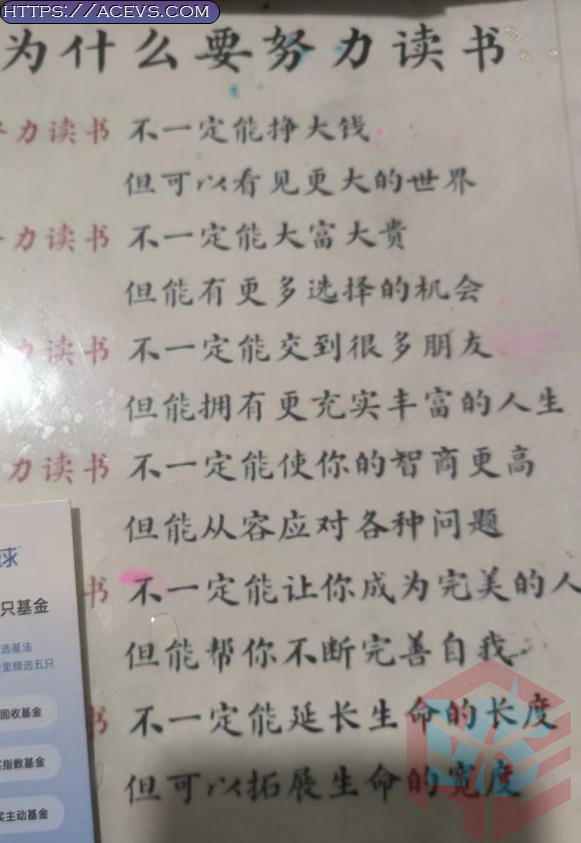 HTTPS://ACEVS.COM
为什么要努力读书
力读书 不一定能挣大钱
但可以看见更大的世界
力读书 不一定能大富大贵
但能有更多选择的机会
读书 不一定能交到很多朋友
但能拥有更充实丰富的人生
力读书 不一定能使你的智商更高
但能从容应对各种问题
书 不一定能让你成为完美的人
但能帮你不断完善自我
书 不一定能延长生命的长度
但可以拓展生命的宽度
球
只基金
选基法
里精选五只
固收基金
指数基金
主动基金